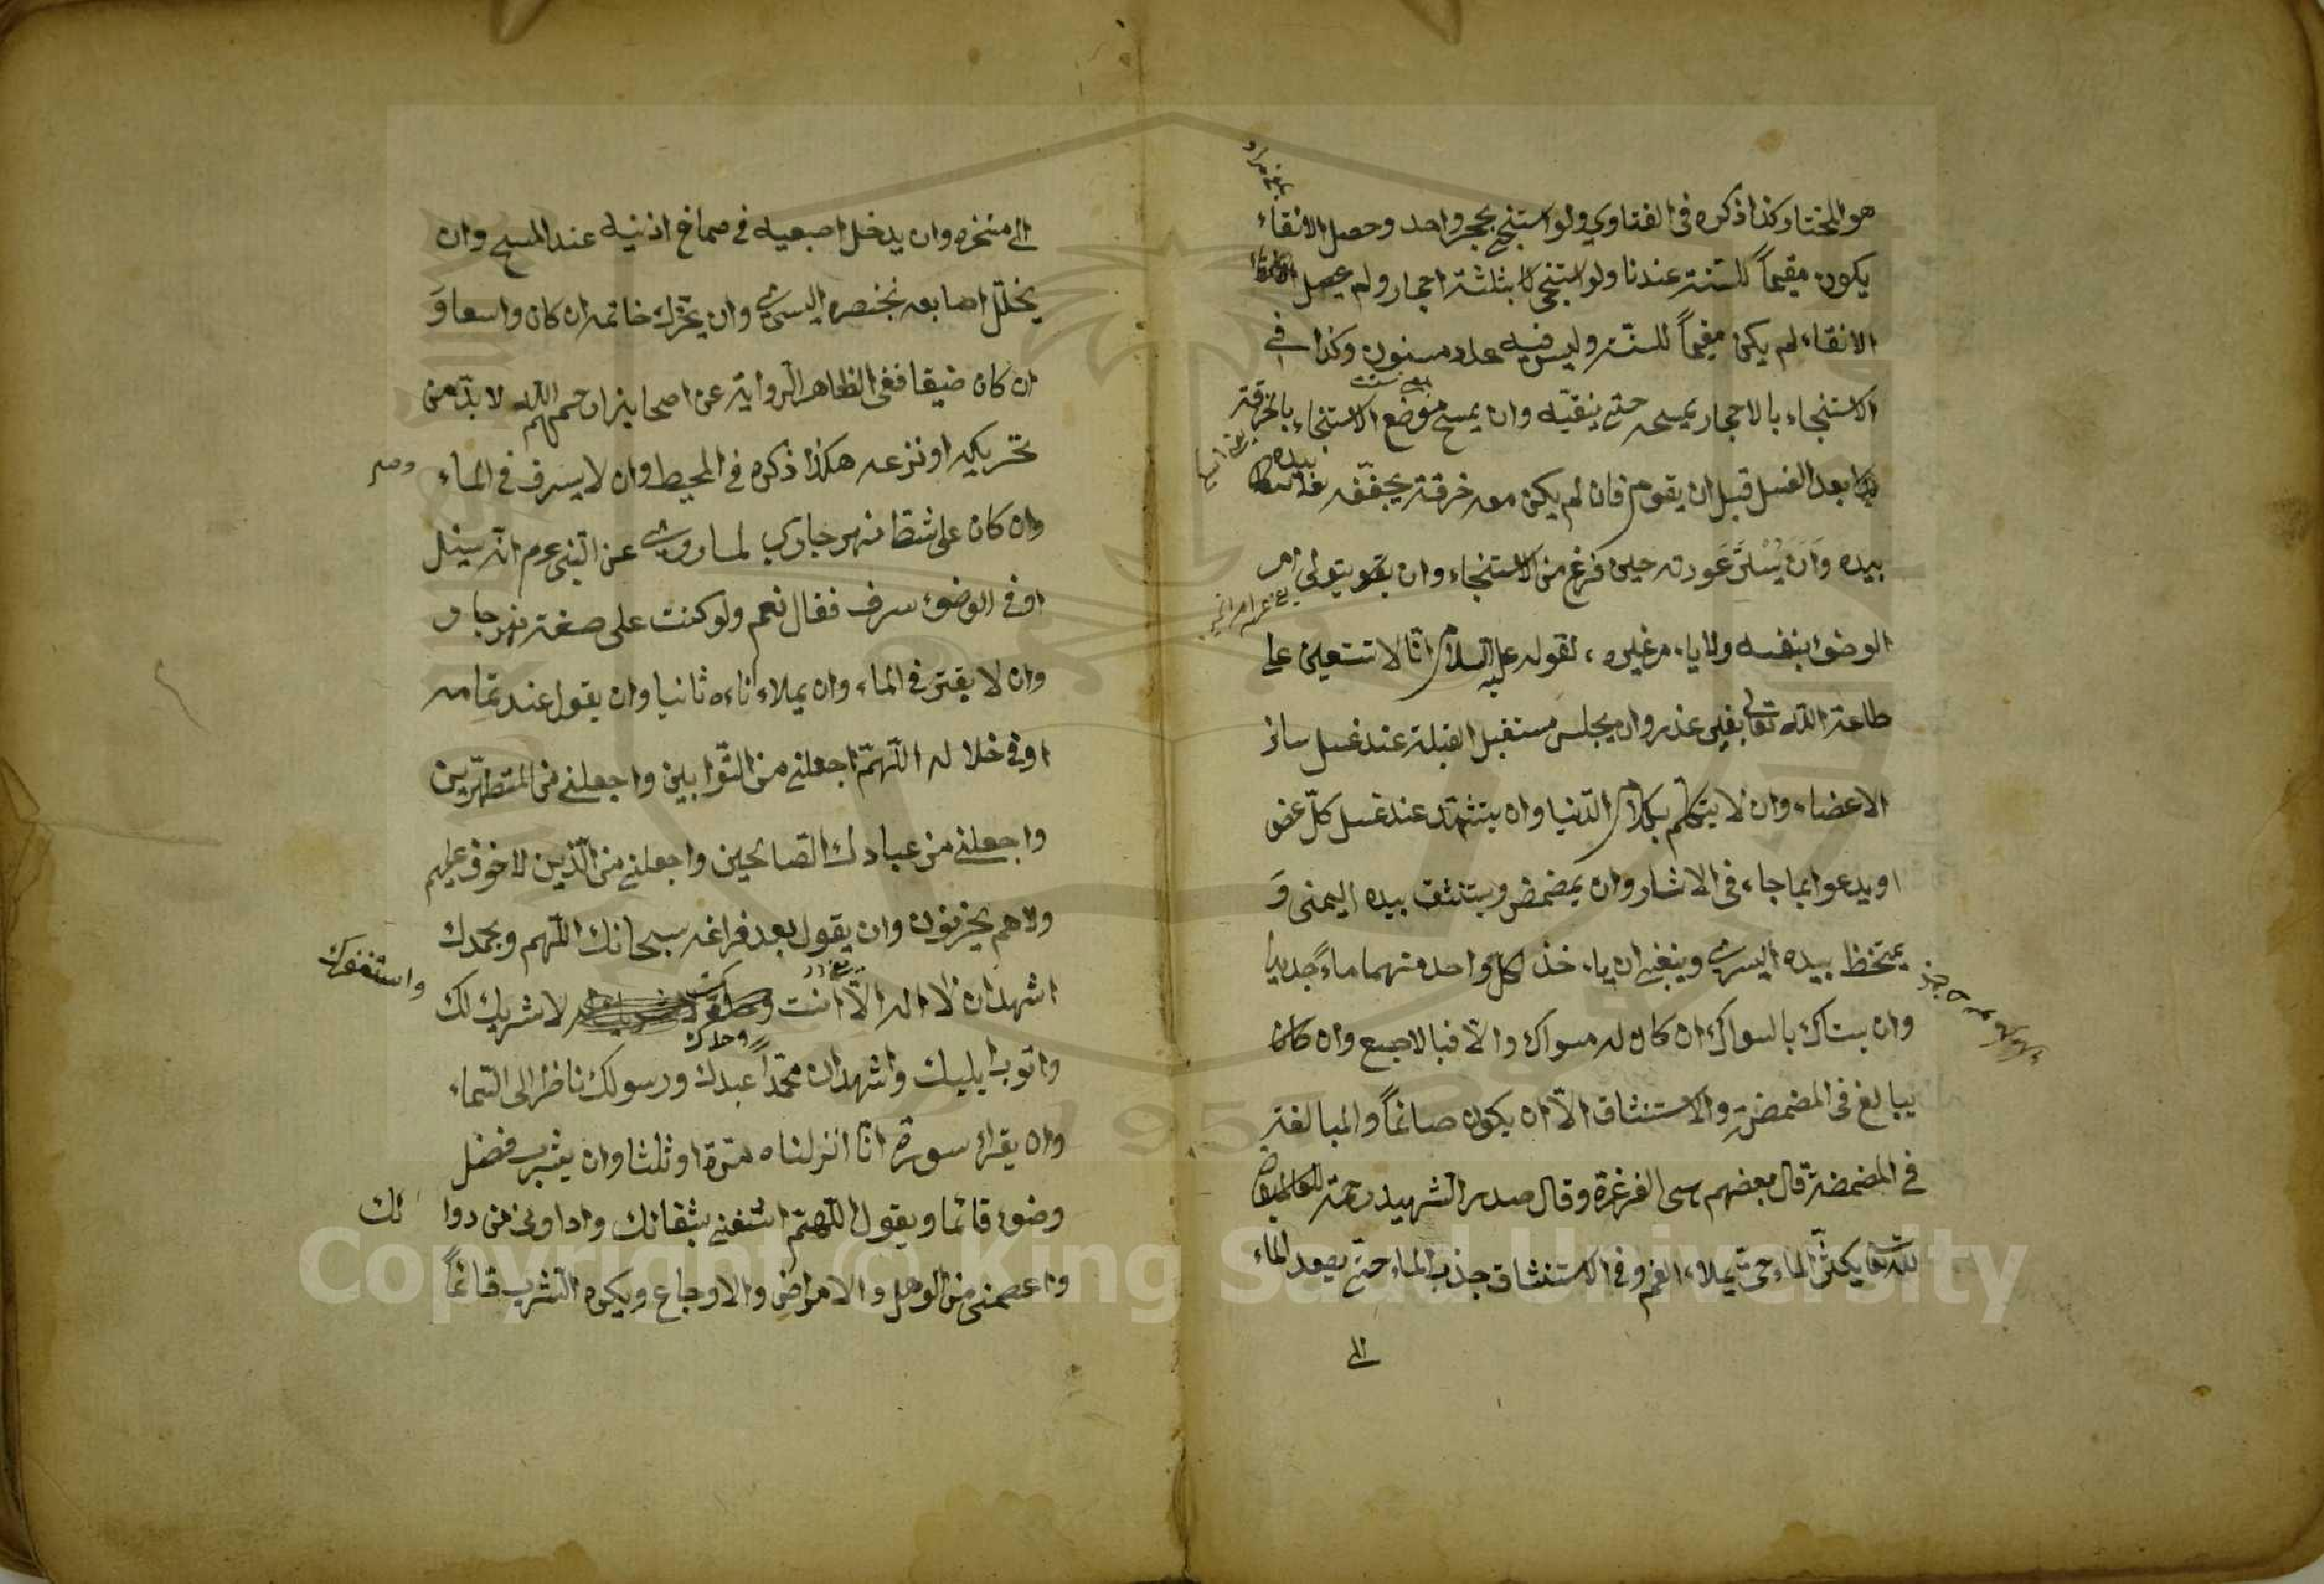 هو المختار كذا ذكره فى الفتاوي ولو استنجي بحجر واحد وحصل الانقاء
يكون مقيماً للسنة عندنا ولو استنجى بثلثة احجار ولم يحصل
الانقاء لم يكن مقيماً للسنة وليس فيه عدد مسنون وكذا في
الاستنجاء بالاحجار يمسحه حتي ينقيه وان يمسح موضع الاستنجاء بالخرقة
بعد الغسل قبل ان يقوم فان لم يكن معه خرقة يجففه بيده
بيده وَان يَسْتُرَ عَورته حين فرغ من الاستنجاء وان يتولى امر
الوضوء بنفسه ولا ياء مر غيره لقوله عليه السلام انّا لا نستعين على
طاعة الله تعالى بغير عذر وان يجلس مستقبل القبلة عند غسل سائر
الاعضاء وان لا يتكلم بكلام الدّنيا وان يتشهّد عند غسل كلّ عضو
او يدعوا بما جاء فى الاثار وان يمضمض ويستنشق بيده اليمنى وَ
يمتخط بيده اليسري وينبغي ان ياء خذ لكل واحد منهما ماءً جديدا
وان يستاك بالسواك ان كان له مسواك والاّ فبالاصبع وان كان
يبالغ فى المضمضة والاستنشاق الاّ ان يكون صائماً والمبالغة
في المضمضة قال بعضهم هى الغرغرة وقال صدر الشهيد رحمة
الله تعا يكثّر الماء حتّى يملاء الفم وفى الاستنشاق جذب الماء حتّى يصعد الماء
الى
الى منخره وان يدخل اصبعيه فى صماخ اذنيه عند المسح وان
يخلّل اصابعه بخنصره اليسري وان يحرّك خاتمه ان كان واسعا وَ
ان كان ضيقا ففى الظاهر الرواية عن اصحابنا رحمهم الله لا بدّ من
تحريكه او نزعه هكذا ذكره فى المحيط وان لا يسرف فى الماء
وان كان على شط نهر جاري لما روي عن النبى عم انّه سيئل
اوفى الوضوء سرف فقال نعم ولو كنت على صفة نهر جار
وان لا يقتر فى الماء وان يملاء اناءه ثانيا وان يقول عند تمامه
اوفى خلاله اللّهمّ اجعلنى من التّوّابين واجعلنى من المتطهّرين
واجعلنى من عبادك الصالحين واجعلنى من الّذين لا خوف عليهم
ولا هم يحزنون وان يقول بعد فراغه سبحانك اللّهم وبحمدك
اشهد ان لا اله الاّ انت وحدك لا شريك لك
واستغفرك
واتوب ايليك واشهد ان محمّداً عبدك ورسولك ناظرا الى السّماء
وان يقراء سورة انّا انزلناه مرّة او ثلثا وان يشرب فضل
وضوئه قائما ويقول اللّهمّ اشفنى بشفائك وداوني من دوا ئك
واعصمنى من الوهل والامراض والاوجاع ويكره الشرب قائماً